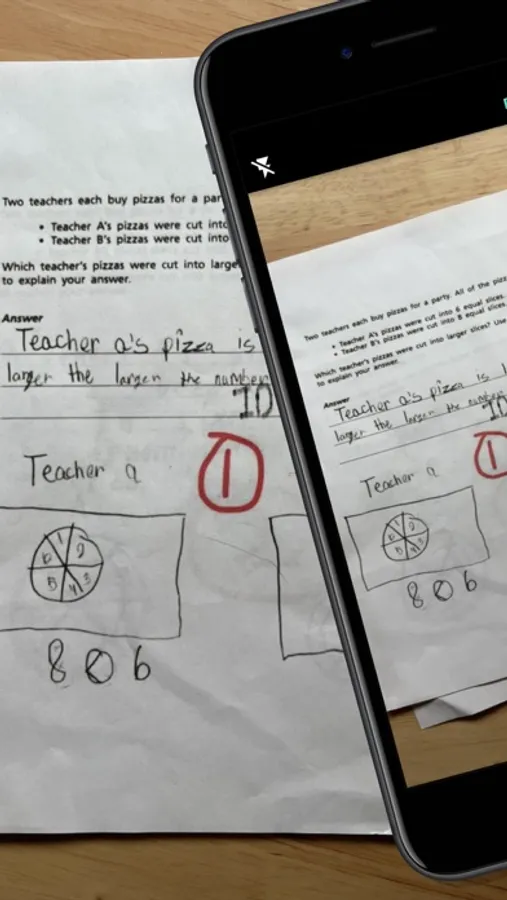 Two teachers each buy pizzas for a par
• Teacher A's pizzas were cut into
• Teacher B's pizzas were cut into
Which teacher's pizzas were cut into large
to explain your answer.
Answer
Teacher a's pizza is
larger the larger the number
10
1
Teacher a
1
6
5
4
3
8 0 6
Two teachers each buy pizzas for a party. All of the pizz
• Teacher A's pizzas were cut into 6 equal slices.
• Teacher B's pizzas were cut into 8 equal slices.
Which teacher's pizzas were cut into larger slices? Use
to explain your answer.
Answer
Teacher a's pizza is l
larger the larger the number
10
1
Teacher a
8 0 6